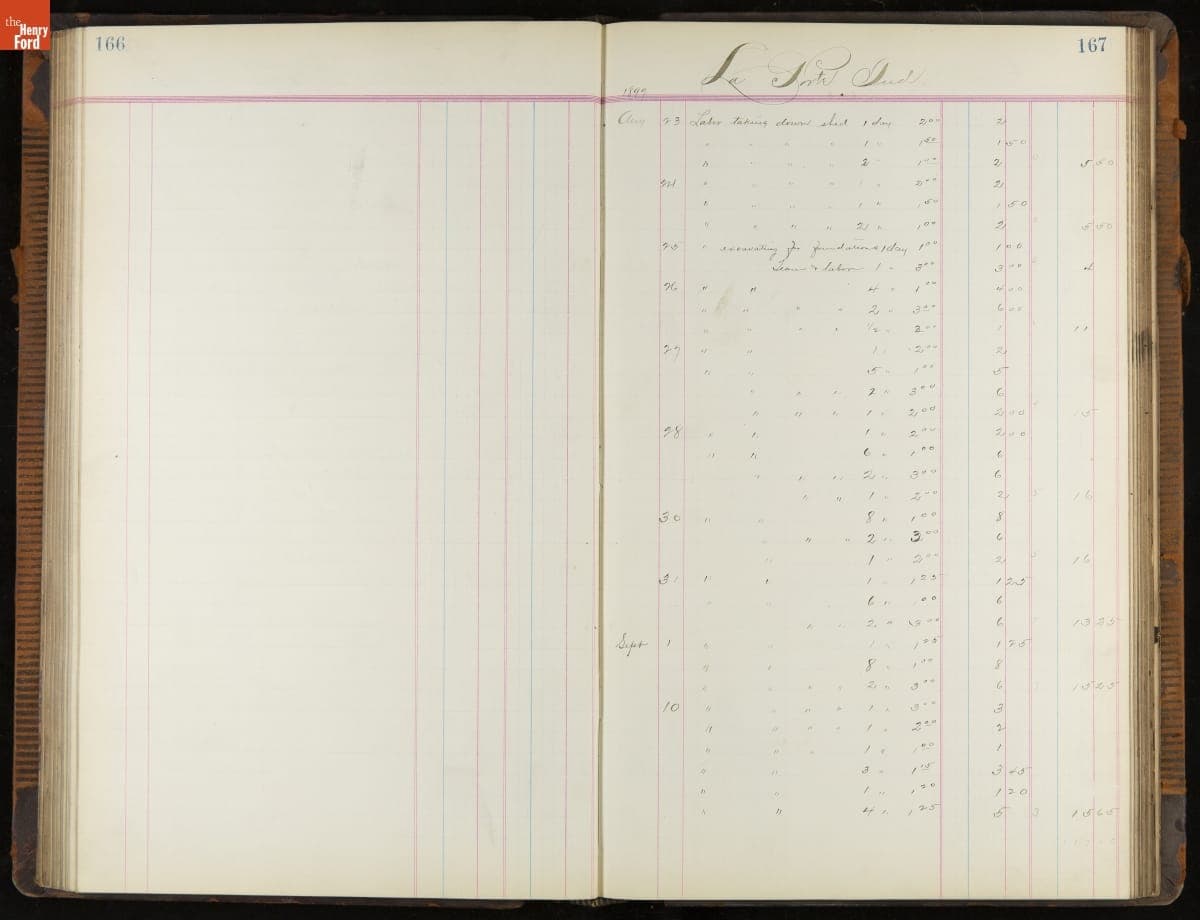 the
Henry
Ford
166
167
La Porte Ind.
1899
Aug 23 Labor taking down shed 1 day 2.00 2
" " " " 1 " 1.50 1 50
" " " " 2 " 1.00 2 5 50
24 " " " " 1 " 2.00 2
" " " " 1 " 1.50 1 50
" " " " 2 " 1.00 2 5 50
25 " excavating for foundations 1 day 1.00 1 00
Team & labor 1 " 3.00 3 00 4
26 " " 4 " 1.00 4 00
" " " " 2 " 3.00 6 00
" " " " 1/2 " 2.00 1 11
27 " " 1 " 2.00 2
" " 5 " 1.00 5
" " " 2 " 3.00 6
" " " 1 " 2.00 2 00 15
28 " " 1 " 2.00 2 00
" " 6 " 1.00 6
" " " 2 " 3.00 6
" " 1 " 2.00 2 16
30 " " 8 " 1.00 8
" " " 2 " 3.00 6
" 1 " 2.00 2 16
31 " " 1 " 1.25 1 25
" " 6 " 1.00 6
" " 2 " 3.00 6 13 25
Sept 1 " " 1 " 1.25 1 25
" " 8 " 1.00 8
" " " " 2 " 3.00 6 15 25
10 " " " " 1 " 3.00 3
" " " " 1 " 2.00 2
" " " 1 " 1.00 1
" " 3 " 1.15 3 45
" " 1 " 1.20 1 20
" " 4 " 1.25 5 15 65